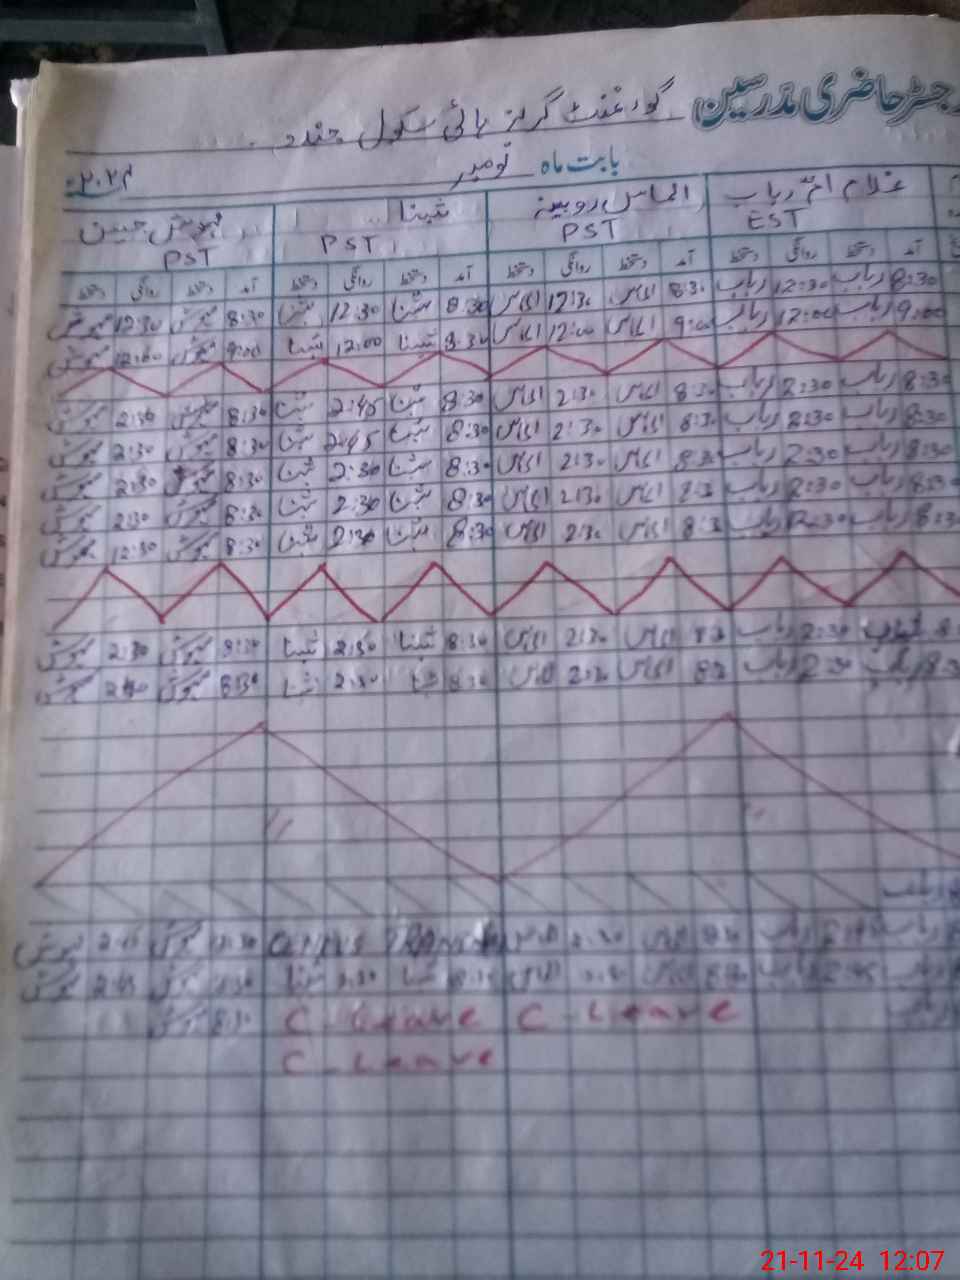 رجسٹر حاضری مدرسین گورنمنٹ گرلز ہائی سکول جندو
بابت ماہ نومبر ۲۰۲۴ء
غلام ام رباب الماس روبینہ شینا مہوش جبین
EST PST PST PST
آمد دستخط روانگی دستخط آمد دستخط روانگی دستخط آمد دستخط روانگی دستخط آمد دستخط روانگی دستخط
8:30 رباب 12:30 رباب 8:30 الماس 12:30 الماس 8:30 شینا 12:30 شینا 8:30 مہوش 12:30 مہوش
9:00 رباب 12:00 رباب 9:00 الماس 12:00 الماس 8:30 شینا 12:00 شینا 9:00 مہوش 12:00 مہوش
8:30 رباب 2:30 رباب 8:30 الماس 2:30 الماس 8:30 شینا 2:45 شینا 8:30 مہوش 2:30 مہوش
8:30 رباب 2:30 رباب 8:30 الماس 2:30 الماس 8:30 شینا 2:45 شینا 8:30 مہوش 2:30 مہوش
8:30 رباب 2:30 رباب 8:30 الماس 2:30 الماس 8:30 شینا 2:30 شینا 8:30 مہوش 2:30 مہوش
8:30 رباب 2:30 رباب 8:3 الماس 2:30 الماس 8:30 شینا 2:30 شینا 8:30 مہوش 2:30 مہوش
8:3 رباب 12:30 رباب 8:3 الماس 2:30 الماس 8:30 شینا 2:30 شینا 8:30 مہوش 12:30 مہوش
رباب 2:30 رباب 8:3 الماس 2:30 الماس 8:30 شینا 2:30 شینا 8:30 مہوش 2:30 مہوش
8:3 رباب 2:30 رباب الماس الماس 8:30 شینا 2:30 شینا 8:30 مہوش مہوش
رباب
رباب رباب الماس 2:30 8:30 مہوش 2:45 مہوش
رباب 2:45 رباب 8:30 الماس الماس 8:30 شینا 2:30 شینا 8:30 مہوش 2:45 مہوش
رباب C - Leave C - Leave 8:30 مہوش
C - Leave
21-11-24 12:07